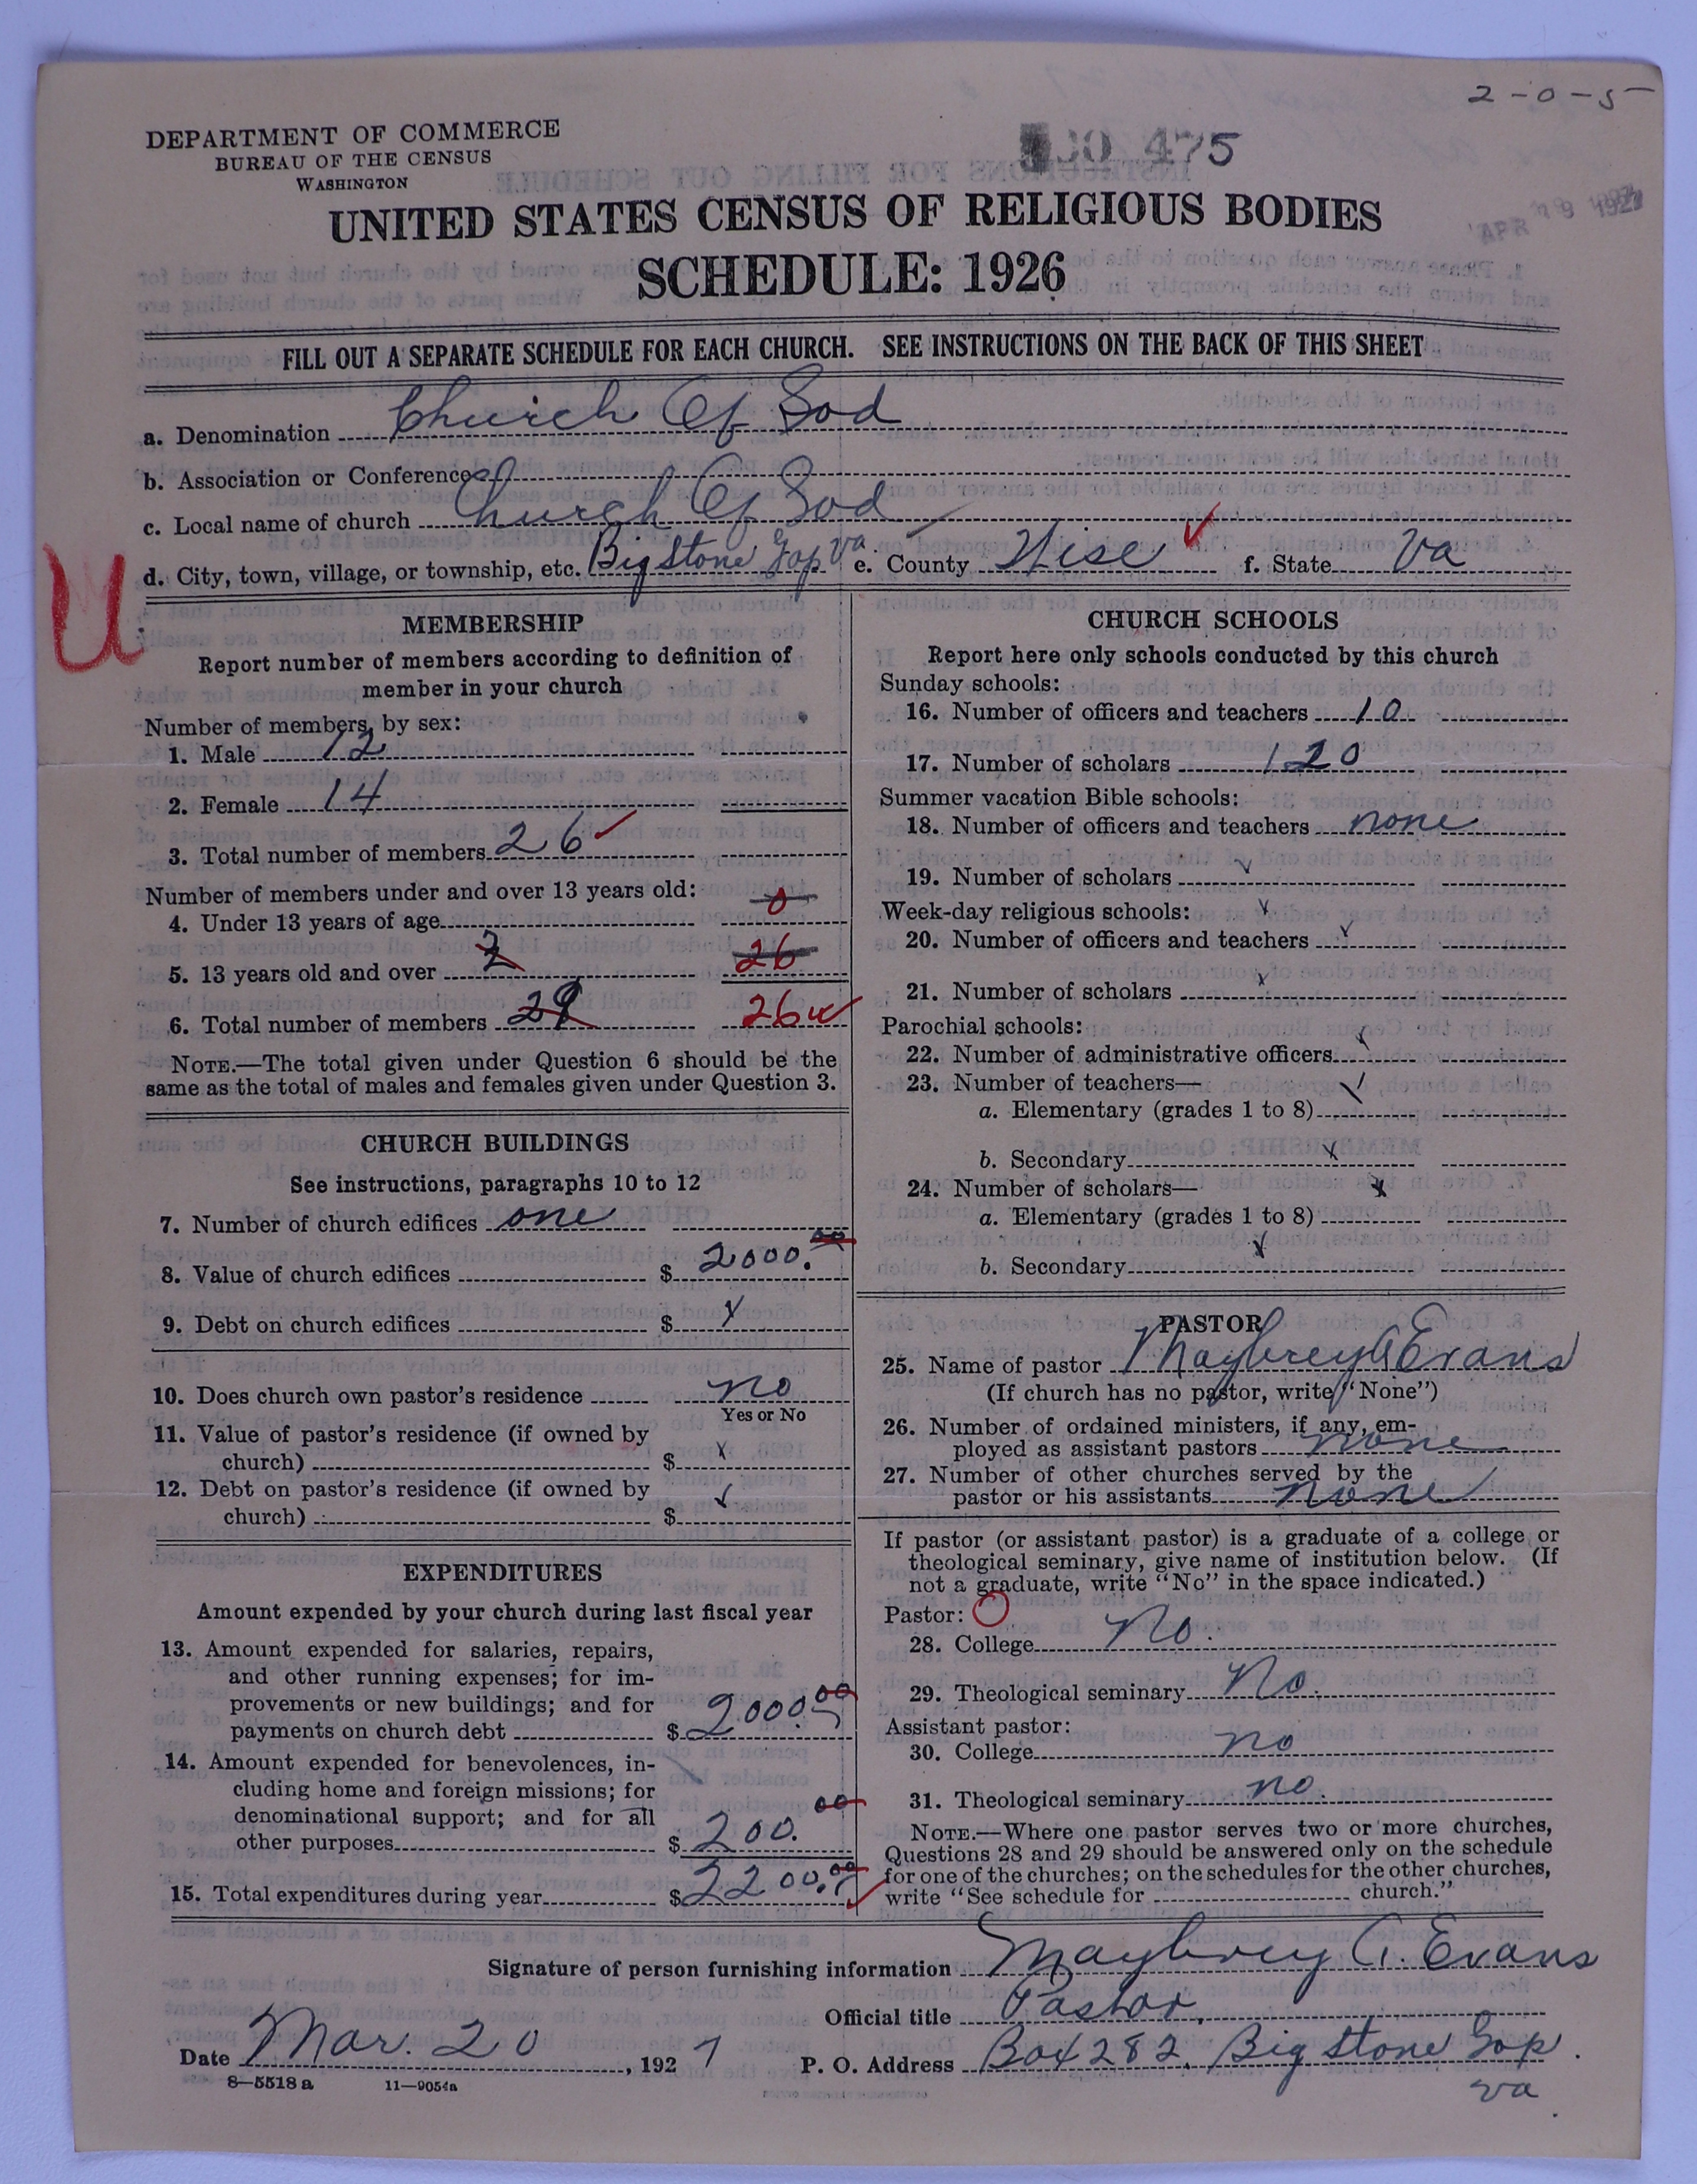 2-0-5
DEPARTMENT OF COMMERCE
BUREAU OF THE CENSUS
WASHINGTON
475
APR 1927
UNITED STATES CENSUS OF RELIGIOUS BODIES
SCHEDULE: 1926
FILL OUT A SEPARATE SCHEDULE FOR EACH CHURCH. SEE INSTRUCTIONS ON THE BACK OF THIS SHEET
a. Denomination Church Of God
b. Association or Conference
c. Local name of church Church Of God
d. City, town, village, or township, etc. Big Stone Gap Va. e. County Wise f. State Va
U
MEMBERSHIP
Report number of members according to definition of
member in your church
Number of members, by sex:
1. Male 12
2. Female 14
3. Total number of members 26
Number of members under and over 13 years old:
4. Under 13 years of age 0
5. 13 years old and over 2 26
6. Total number of members 26
NOTE.—The total given under Question 6 should be the
same as the total of males and females given under Question 3.
CHURCH BUILDINGS
See instructions, paragraphs 10 to 12
7. Number of church edifices one
8. Value of church edifices $ 2000.00
9. Debt on church edifices $ x
10. Does church own pastor's residence no
Yes or No
11. Value of pastor's residence (if owned by
church) $ x
12. Debt on pastor's residence (if owned by
church) $ ✓
EXPENDITURES
Amount expended by your church during last fiscal year
13. Amount expended for salaries, repairs,
and other running expenses; for im-
provements or new buildings; and for
payments on church debt $ 2000.00
14. Amount expended for benevolences, in-
cluding home and foreign missions; for
denominational support; and for all
other purposes $ 200.00
15. Total expenditures during year $ 2200.00
CHURCH SCHOOLS
Report here only schools conducted by this church
Sunday schools:
16. Number of officers and teachers 10
17. Number of scholars 120
Summer vacation Bible schools:
18. Number of officers and teachers none
19. Number of scholars ✓
Week-day religious schools: x
20. Number of officers and teachers ✓
21. Number of scholars x
Parochial schools:
22. Number of administrative officers x
23. Number of teachers— ✓
a. Elementary (grades 1 to 8)
b. Secondary x
24. Number of scholars— x
a. Elementary (grades 1 to 8)
b. Secondary x
PASTOR
25. Name of pastor Maybrey A Evans
(If church has no pastor, write "None")
26. Number of ordained ministers, if any, em-
ployed as assistant pastors none
27. Number of other churches served by the
pastor or his assistants none
If pastor (or assistant pastor) is a graduate of a college or
theological seminary, give name of institution below. (If
not a graduate, write "No" in the space indicated.)
Pastor:
28. College No.
29. Theological seminary No.
Assistant pastor:
30. College no
31. Theological seminary no.
NOTE.—Where one pastor serves two or more churches,
Questions 28 and 29 should be answered only on the schedule
for one of the churches; on the schedules for the other churches,
write "See schedule for church."
Signature of person furnishing information Maybrey A. Evans
Official title Pastor.
Date Mar. 20, 1927 P. O. Address Box 282, Big Stone Gap.
Va
8-5518 a 11-9054a